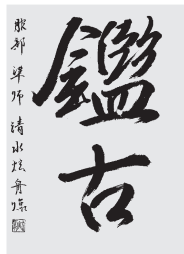 鑑古
服部 準師 清水炫舟